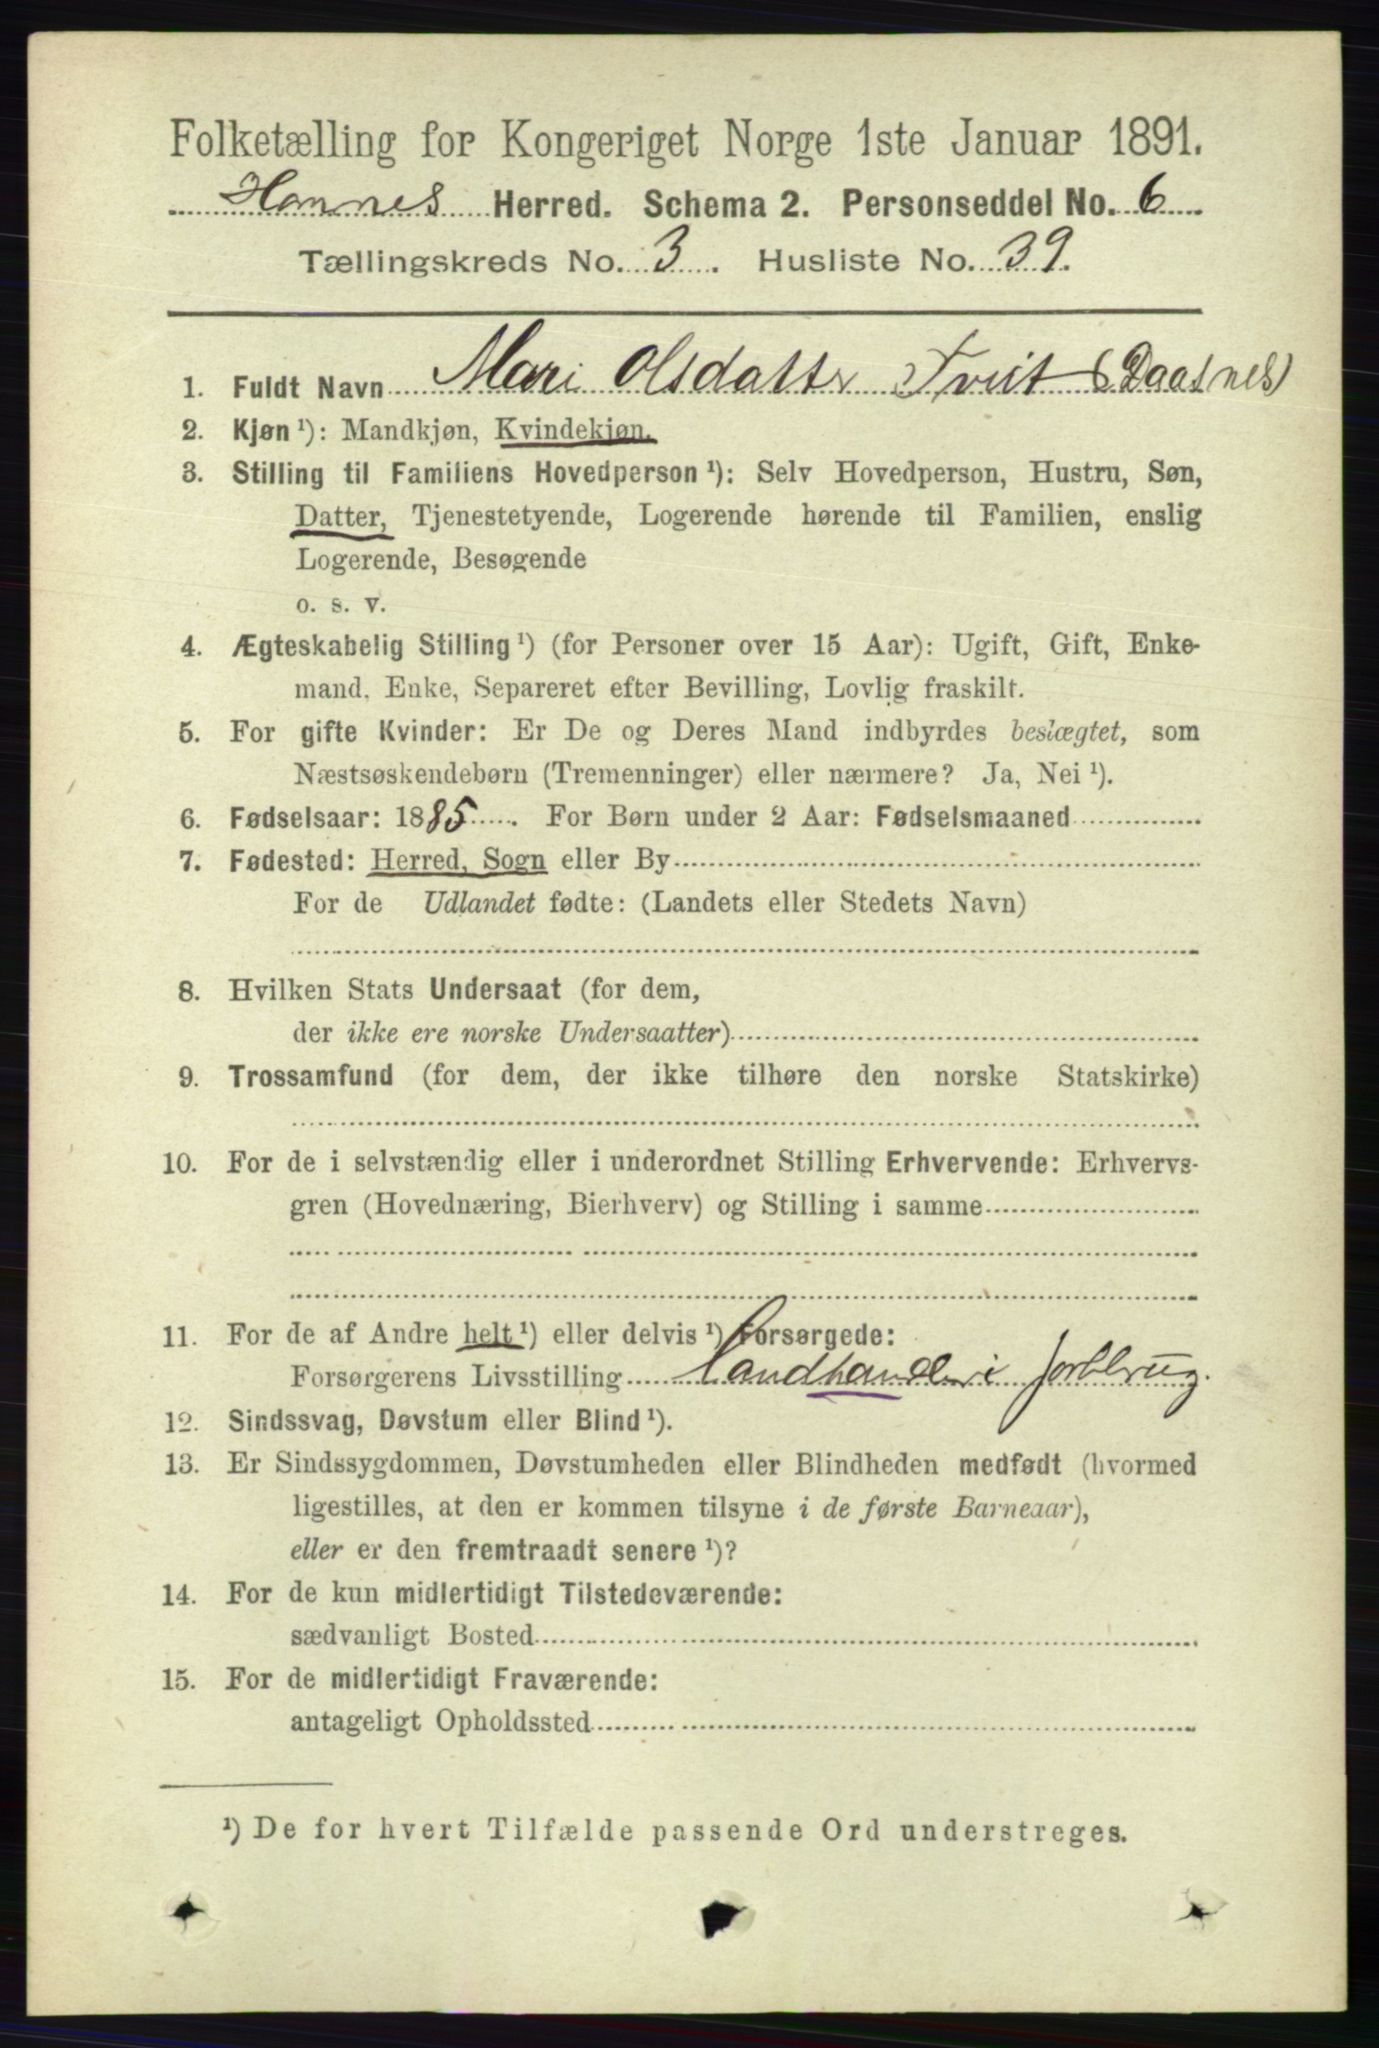 Folketælling for Kongeriget Norge 1ste Januar 1891.
Honnes Herred. Schema 2. Personseddel No. 6
Tællingskreds No. 3. Husliste No. 39.
1. Fuldt Navn Mari Olsdatter Tveit (Daasnes)
2. Kjøn ¹): Mandkjøn, Kvindekjøn.
3. Stilling til Familiens Hovedperson ¹): Selv Hovedperson, Hustru, Søn,
Datter, Tjenestetyende, Logerende hørende til Familien, enslig
Logerende, Besøgende
o. s. v.
4. Ægteskabelig Stilling ¹) (for Personer over 15 Aar): Ugift, Gift, Enke-
mand, Enke, Separeret efter Bevilling, Lovlig fraskilt.
5. For gifte Kvinder: Er De og Deres Mand indbyrdes beslægtet, som
Næstsøskendebørn (Tremenninger) eller nærmere? Ja, Nei ¹).
6. Fødselsaar: 1885. For Børn under 2 Aar: Fødselsmaaned
7. Fødested: Herred, Sogn eller By
For de Udlandet fødte: (Landets eller Stedets Navn)
8. Hvilken Stats Undersaat (for dem,
der ikke ere norske Undersaatter)
9. Trossamfund (for dem, der ikke tilhøre den norske Statskirke)
10. For de i selvstændig eller i underordnet Stilling Erhvervende: Erhvervs-
gren (Hovednæring, Bierhverv) og Stilling i samme
11. For de af Andre helt ¹) eller delvis ¹) Forsørgede:
Forsørgerens Livsstilling Landhandleri Jordbrug.
12. Sindssvag, Døvstum eller Blind ¹).
13. Er Sindssygdommen, Døvstumheden eller Blindheden medfødt (hvormed
ligestilles, at den er kommen tilsyne i de første Barneaar),
eller er den fremtraadt senere ¹)?
14. For de kun midlertidigt Tilstedeværende:
sædvanligt Bosted
15. For de midlertidigt Fraværende:
antageligt Opholdssted
¹) De for hvert Tilfælde passende Ord understreges.